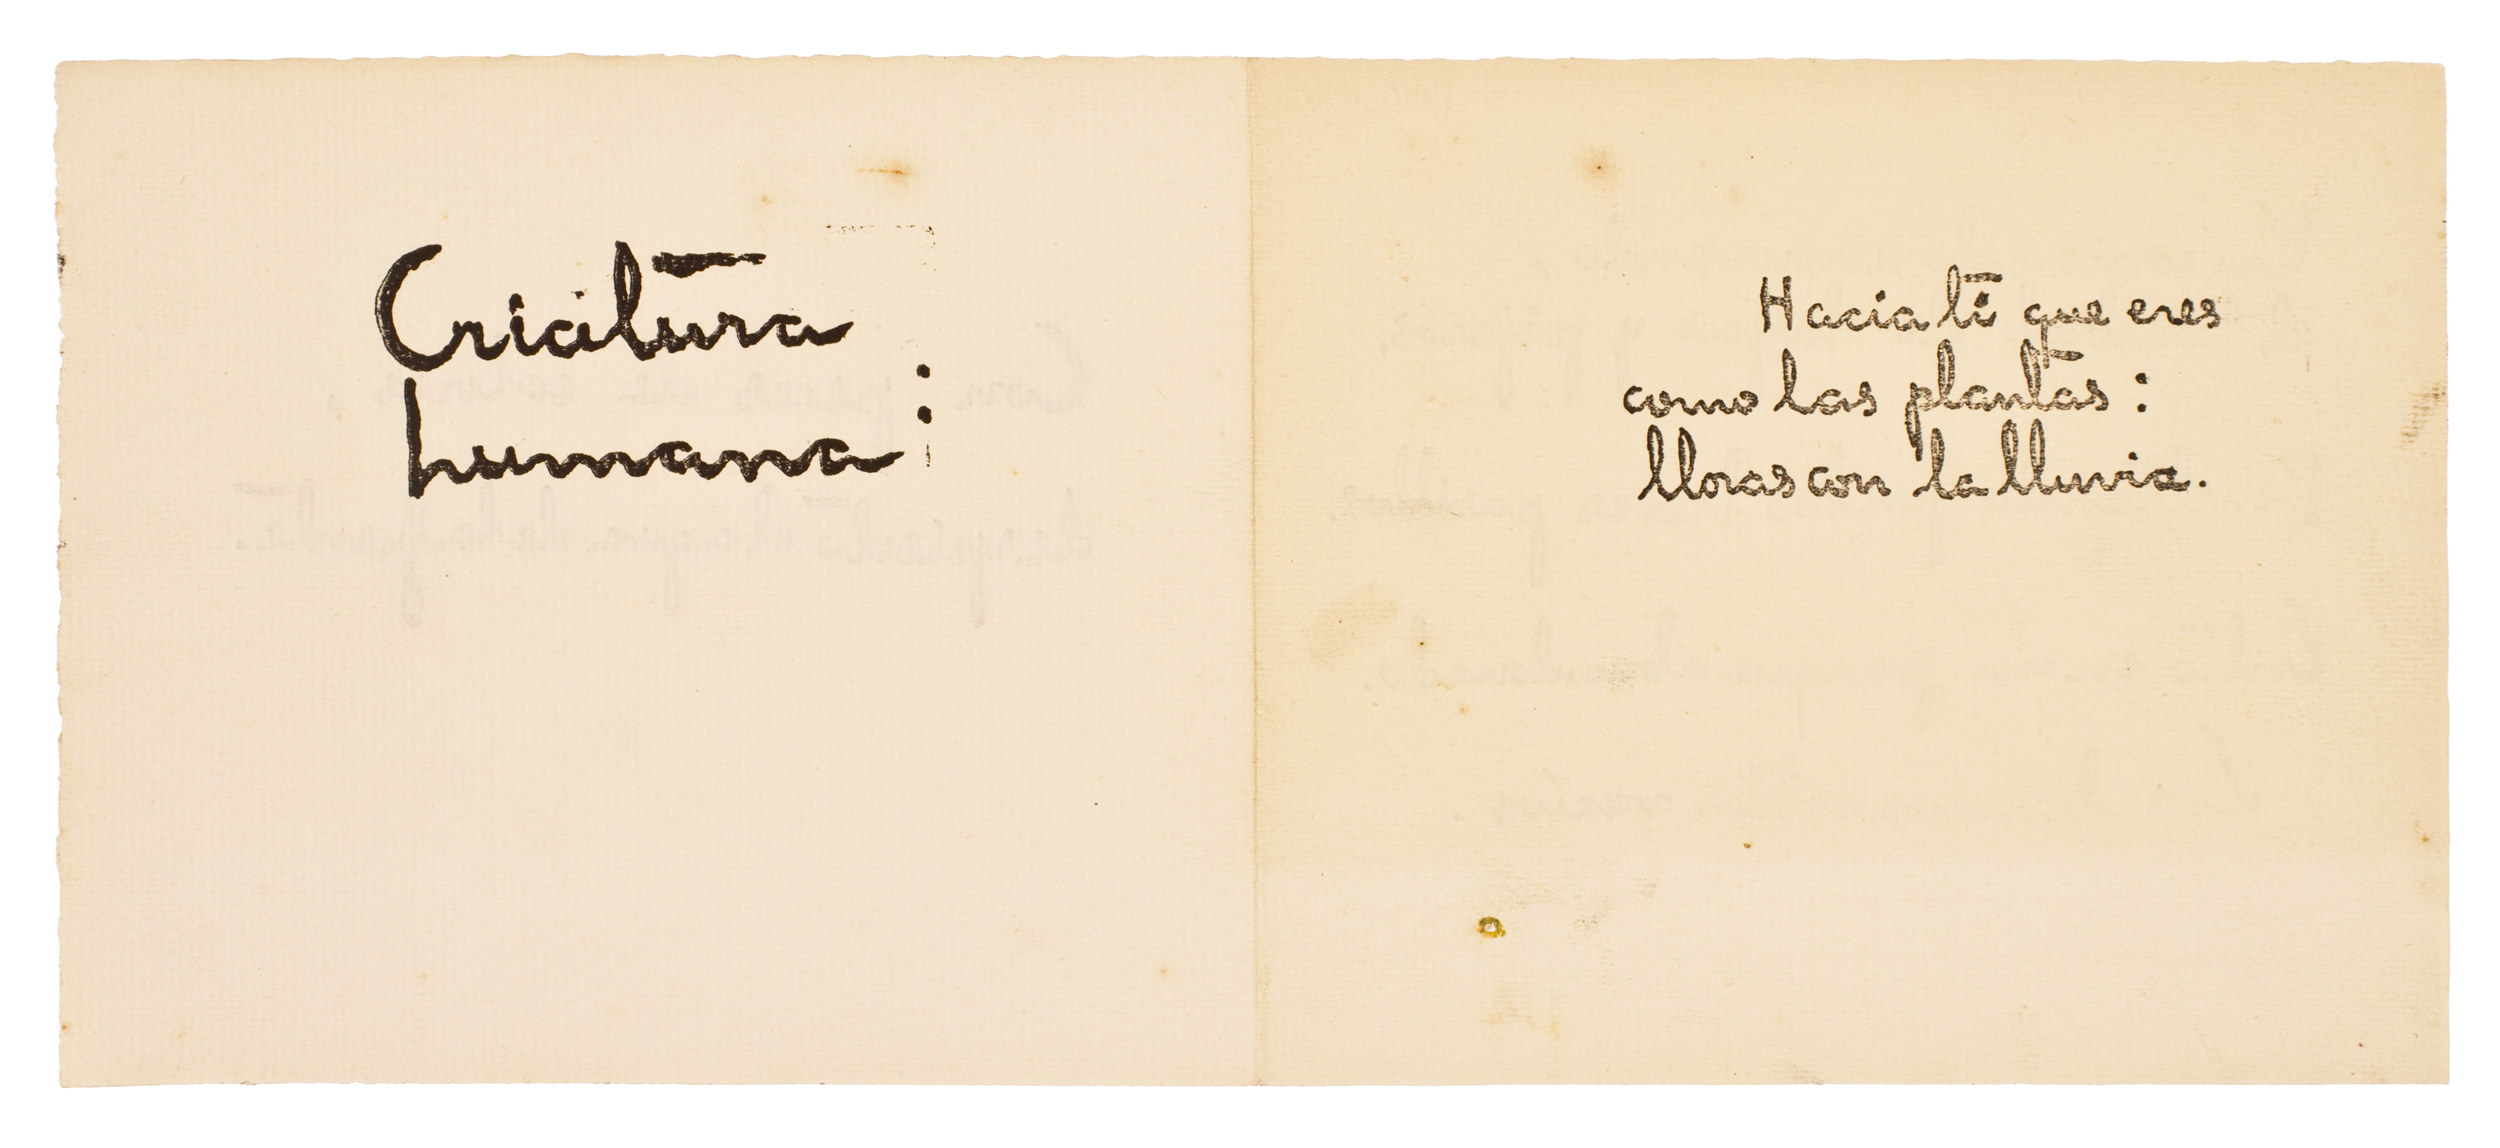 Criatura
humana:
Hacia ti que eres
como las plantas:
lloras con la lluvia.